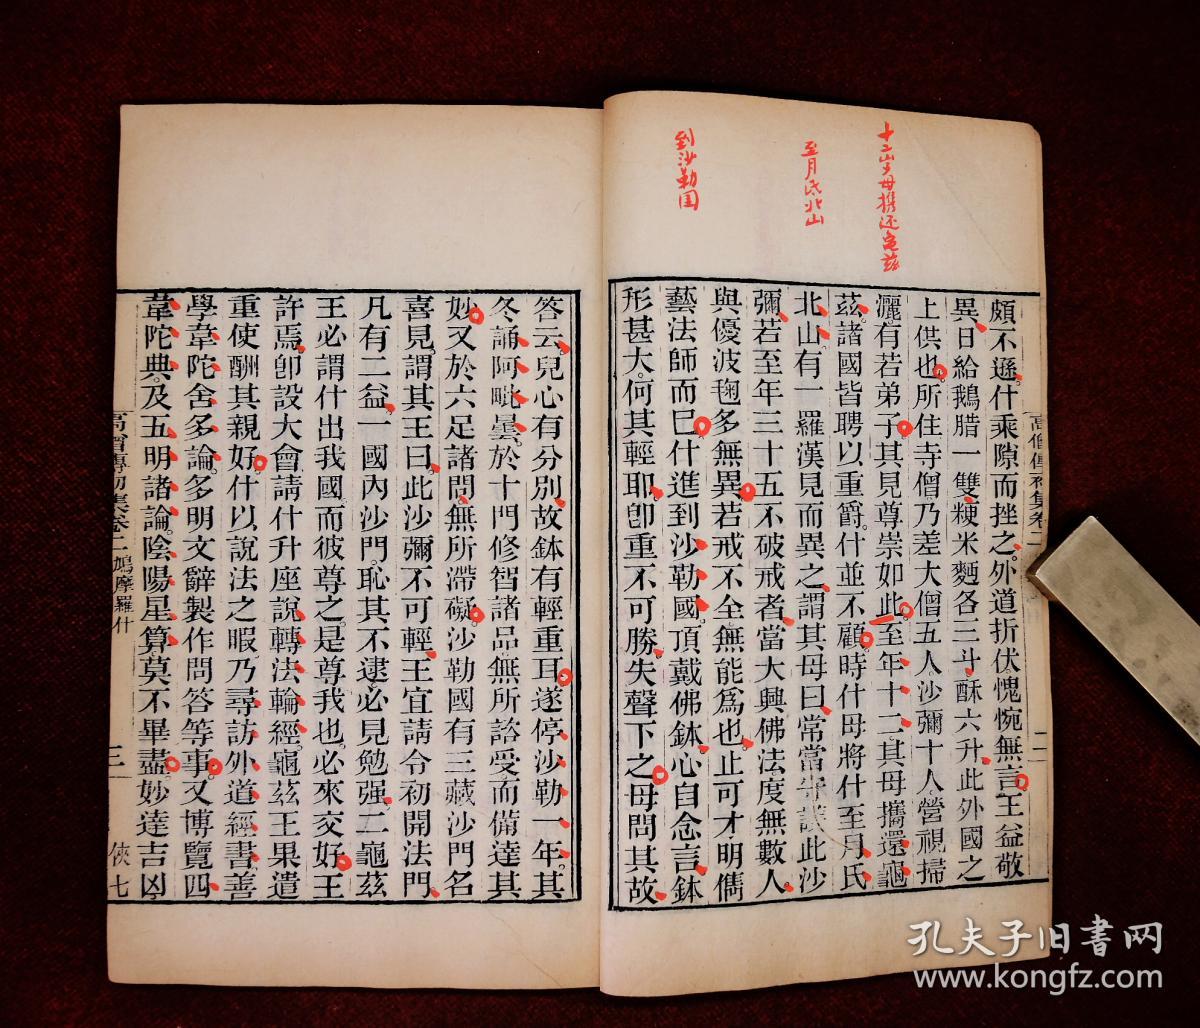 十二岁母携还龟茲
至月氏北山
到沙勒国
頗不遜什乘隙而挫之外道折伏愧惋無言王益敬
異日給鵝腊一雙粳米麵各三斗酥六升此外國之
上供也所住寺僧乃差大僧五人沙彌十人營視掃
灑有若弟子其見尊崇如此至年十二其母攜還龜
茲諸國皆聘以重爵什並不顧時什母將什至月氏
北山有一羅漢見而異之謂其母曰常當守護此沙
彌若至年三十五不破戒者當大興佛法度無數人
與優波毱多無異若戒不全無能爲也止可才明儁
藝法師而巳什進到沙勒國頂戴佛鉢心自念言鉢
形甚大何其輕耶卽重不可勝失聲下之母問其故
高僧傳初集卷二
二
答云兒心有分別故鉢有輕重耳遂停沙勒一年其
冬誦阿毗曇於十門修智諸品無所諮受而備達其
妙又於六足諸問無所滯礙沙勒國有三藏沙門名
喜見謂其王曰此沙彌不可輕王宜請令初開法門
凡有二益一國內沙門恥其不逮必見勉强二龜茲
王必謂什出我國而彼尊之是尊我也必來交好王
許焉卽設大會請什升座說轉法輪經龜茲王果遣
重使酬其親好什以說法之暇乃尋訪外道經書善
學韋陀舍多論多明文辭製作問答等事又博覽四
韋陀典及五明諸論陰陽星算莫不畢盡妙達吉凶
高僧傳初集卷二 鳩摩羅什
三
俠七
孔夫子旧書网
www.kongfz.com